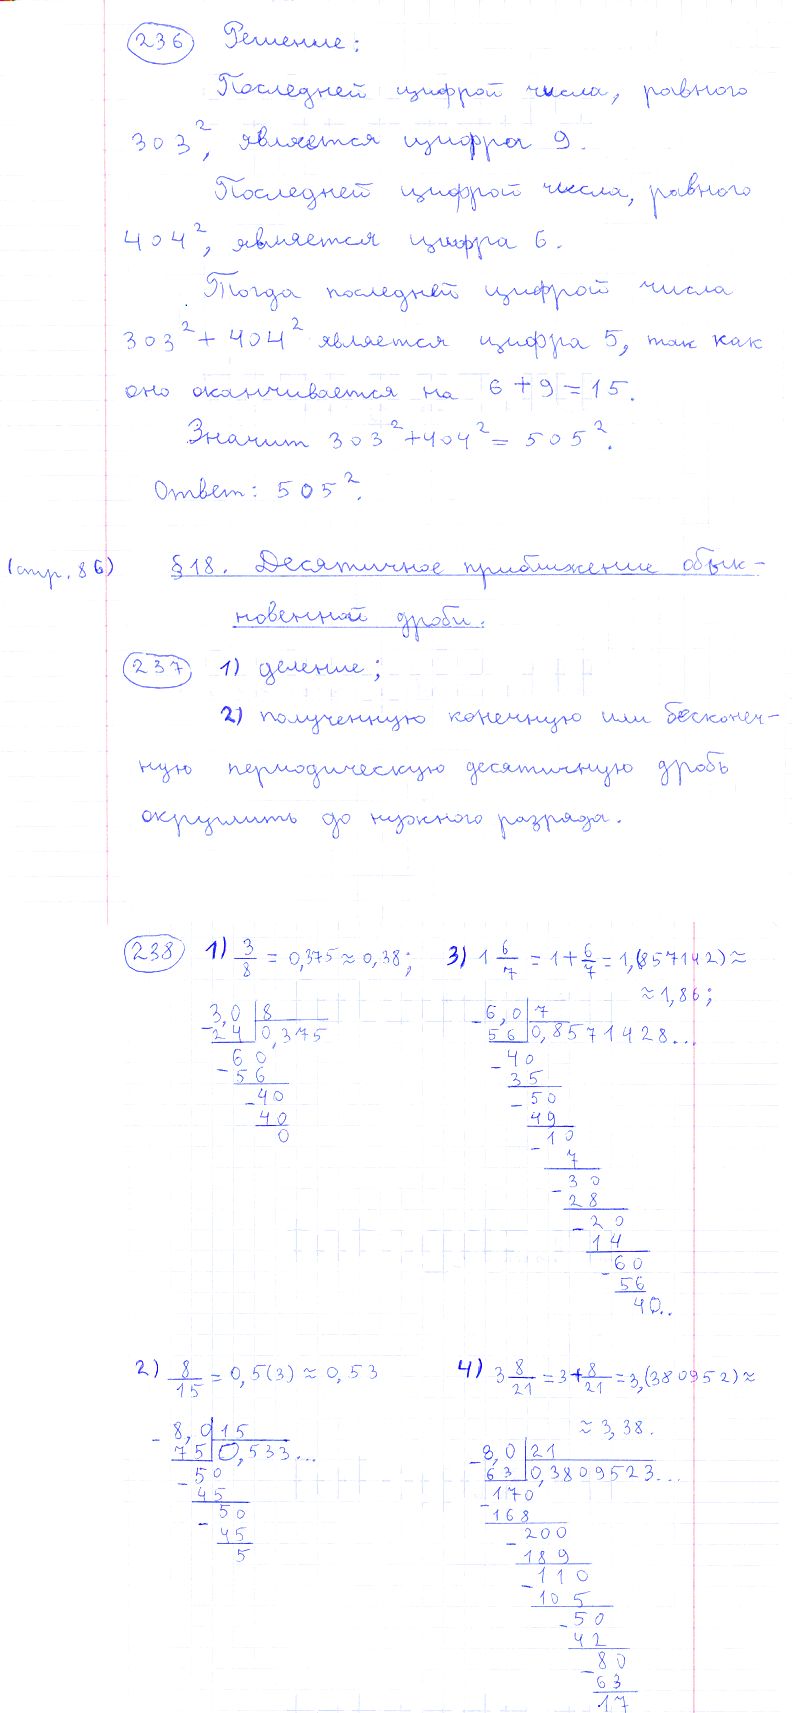 236 Решение:
Последней цифрой числа, равного
303², является цифра 9.
Последней цифрой числа, равного
404², является цифра 6.
Тогда последней цифрой числа
303² + 404² является цифра 5, так как
оно оканчивается на 6 + 9 = 15.
Значит 303² + 404² = 505².
Ответ: 505².
(стр. 86) §18. Десятичное приближение обык-
новенной дроби.
237 1) деление;
2) полученную конечную или бесконеч-
ную периодическую десятичную дробь
округлить до нужного разряда.
238 1) 3/8 = 0,375 ≈ 0,38;
3,0 | 8
- 24 | 0,375
60
- 56
- 40
40
0
3) 1 6/7 = 1 + 6/7 = 1,(857142) ≈
≈ 1,86;
- 6,0 | 7
56 | 0,8571428...
- 40
35
- 50
49
- 10
7
- 30
28
- 20
14
- 60
56
40..
2) 8/15 = 0,5(3) ≈ 0,53
- 8,0 | 15
75 | 0,533...
- 50
45
- 50
45
5
4) 3 8/21 = 3 + 8/21 = 3,(380952) ≈
≈ 3,38.
- 8,0 | 21
63 | 0,3809523...
- 170
168
- 200
189
- 110
105
- 50
42
- 80
63
17